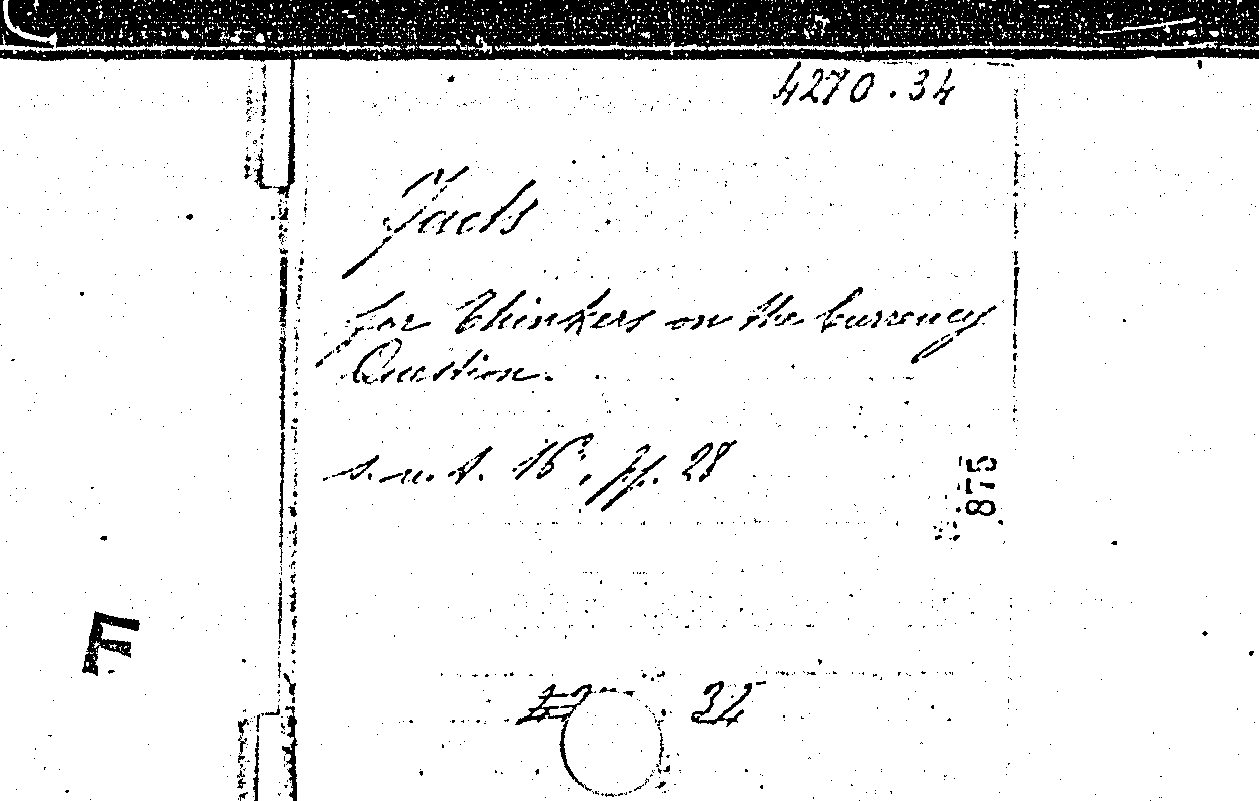 4270.34
Facts
for thinkers on the Currency
Question.
s.n.t. 16°. pp. 28
875
F
32